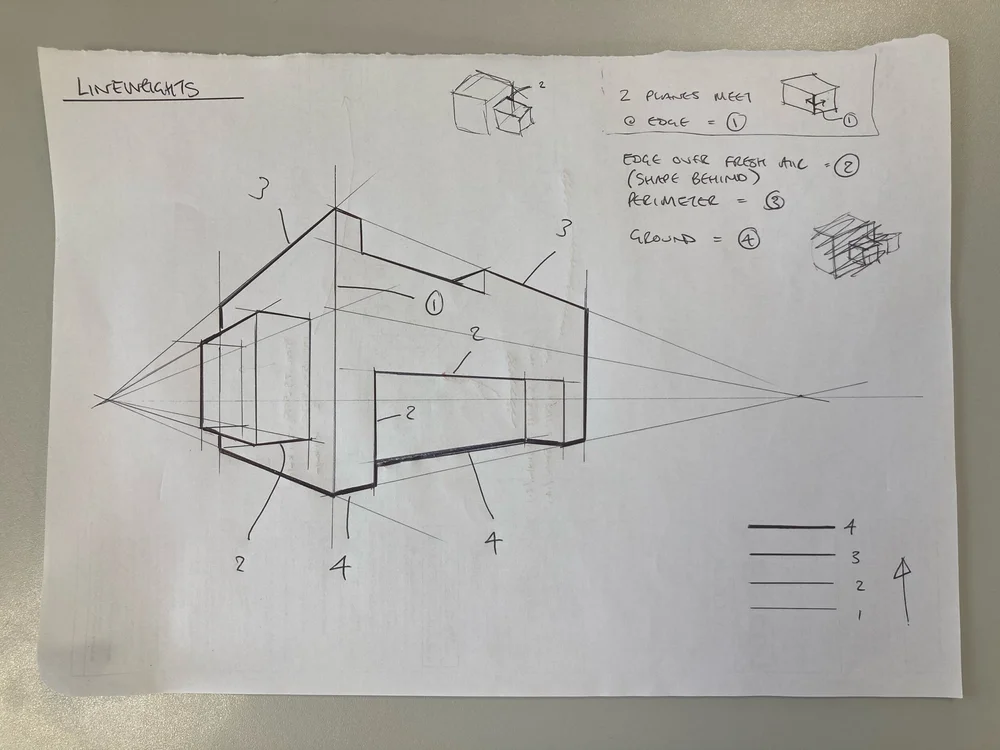 LINEWEIGHTS
2
2 PLANES MEET
@ EDGE = ①
①
EDGE OVER FRESH AIR = ②
(SHAPE BEHIND)
PERIMETER = ③
GROUND = ④
3
3
①
2
2
2
4
4
4
3
2
1